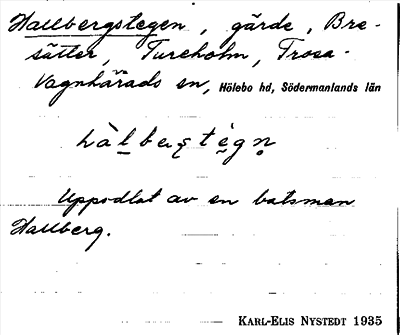 Hallbergstegen, gärde, Bre-
sätter, Tureholm, Trosa-
Vagnhärads sn, Hölebo hd, Södermanlands län
Uppodlat av en batsman
Hallberg.
KARL-ELIS NYSTEDT 1935